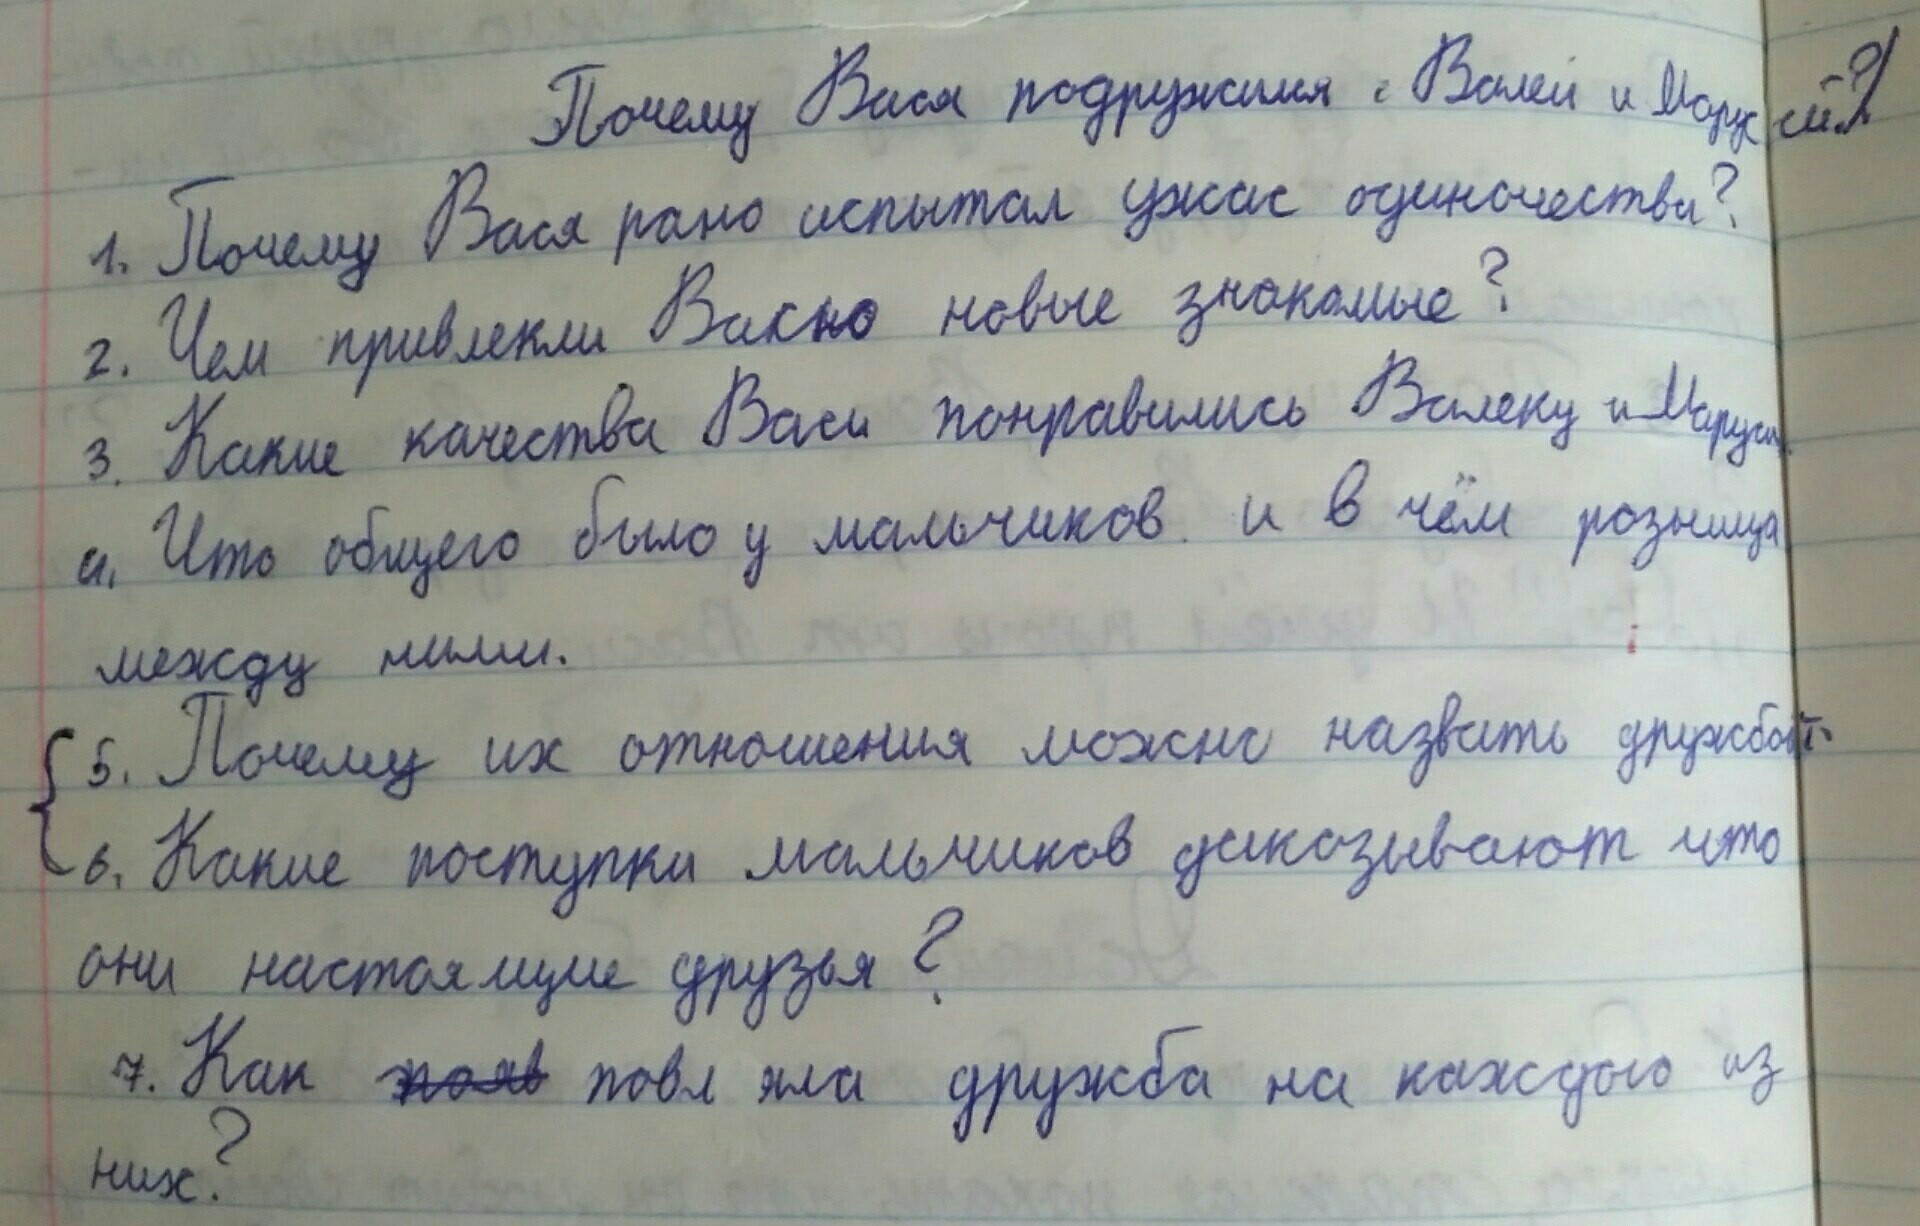 Почему Вася подружился с Валей и Марусей?
1. Почему Вася рано испытал ужас одиночества?
2. Чем привлекли Васю новые знакомые?
3. Какие качества Васи понравились Валеку и Маруси.
4. Что общего было у мальчиков и в чём розница
между ними.
5. Почему их отношения можно назвать дружбой.
6. Какие поступки мальчиков доказывают что
они настоящие друзья?
7. Как повл яла дружба на каждого из
них?